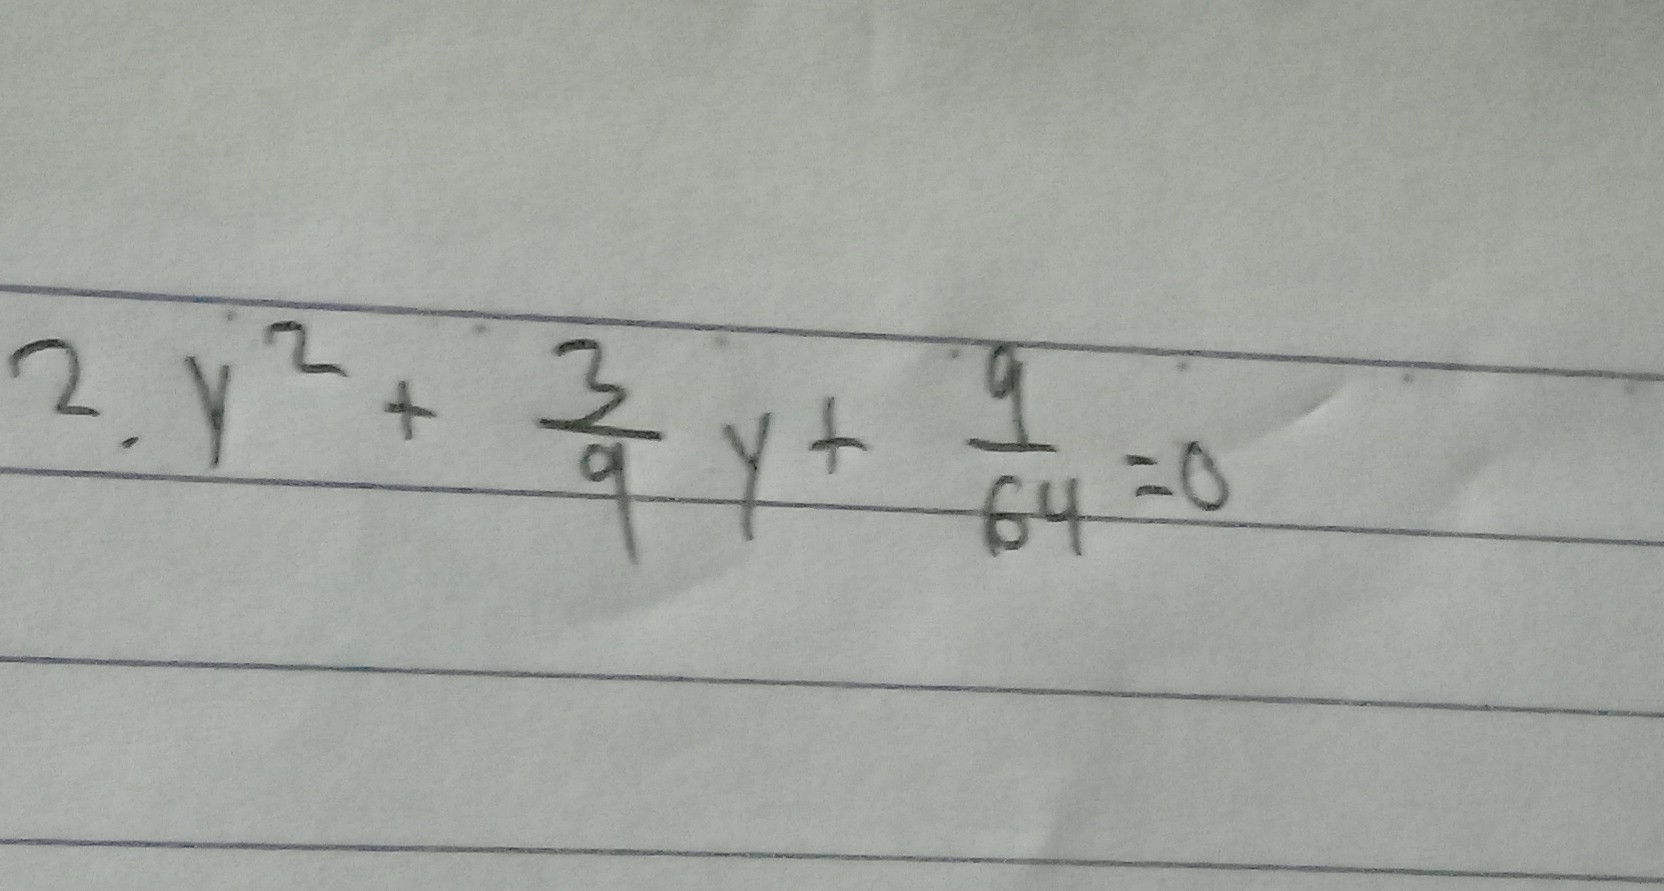 2. y² + 3/9 y + 9/64 = 0